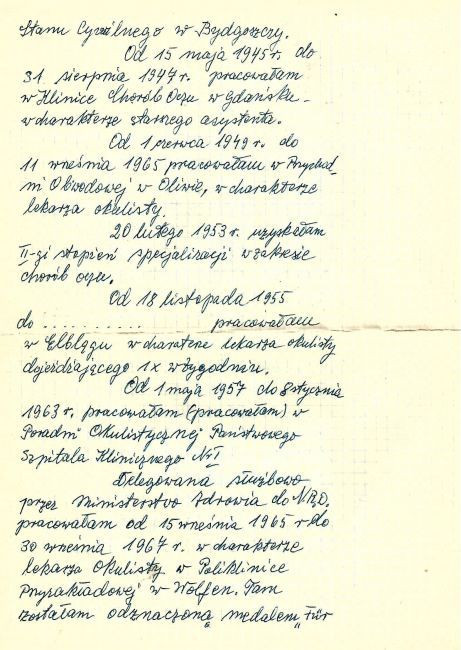 Stanu Cywilnego w Bydgoszczy.
Od 15 maja 1945 r. do
31 sierpnia 1947 r. pracowałam
w Klinice Chorób Oczu w Gdańsku -
w charakterze starszego asystenta.
Od 1 czerwca 1949 r. do
11 września 1965 pracowałam w Przychod-
ni Obwodowej w Oliwie, w charakterze
lekarza okulisty.
20 lutego 1953 r. uzyskałam
II-gi stopień specjalizacji w zakresie
chorób oczu.
Od 18 listopada 1955
do .......... pracowałam
w Elblągu w charakterze lekarza okulisty
dojeżdżającego 1x w tygodniu.
Od 1 maja 1957 do 8 stycznia
1963 r. pracowałam (pracowałam) w
Poradni Okulistycznej Państwowego
Szpitala Klinicznego № I
Delegowana służbowo
przez Ministerstwo Zdrowia do N.R.D.
pracowałam od 15 września 1965 r do
30 września 1967 r. w charakterze
lekarza Okulisty w Poliklinice
Przyzakładowej w Wolfen. Tam
zostałam odznaczoną medalem „Für